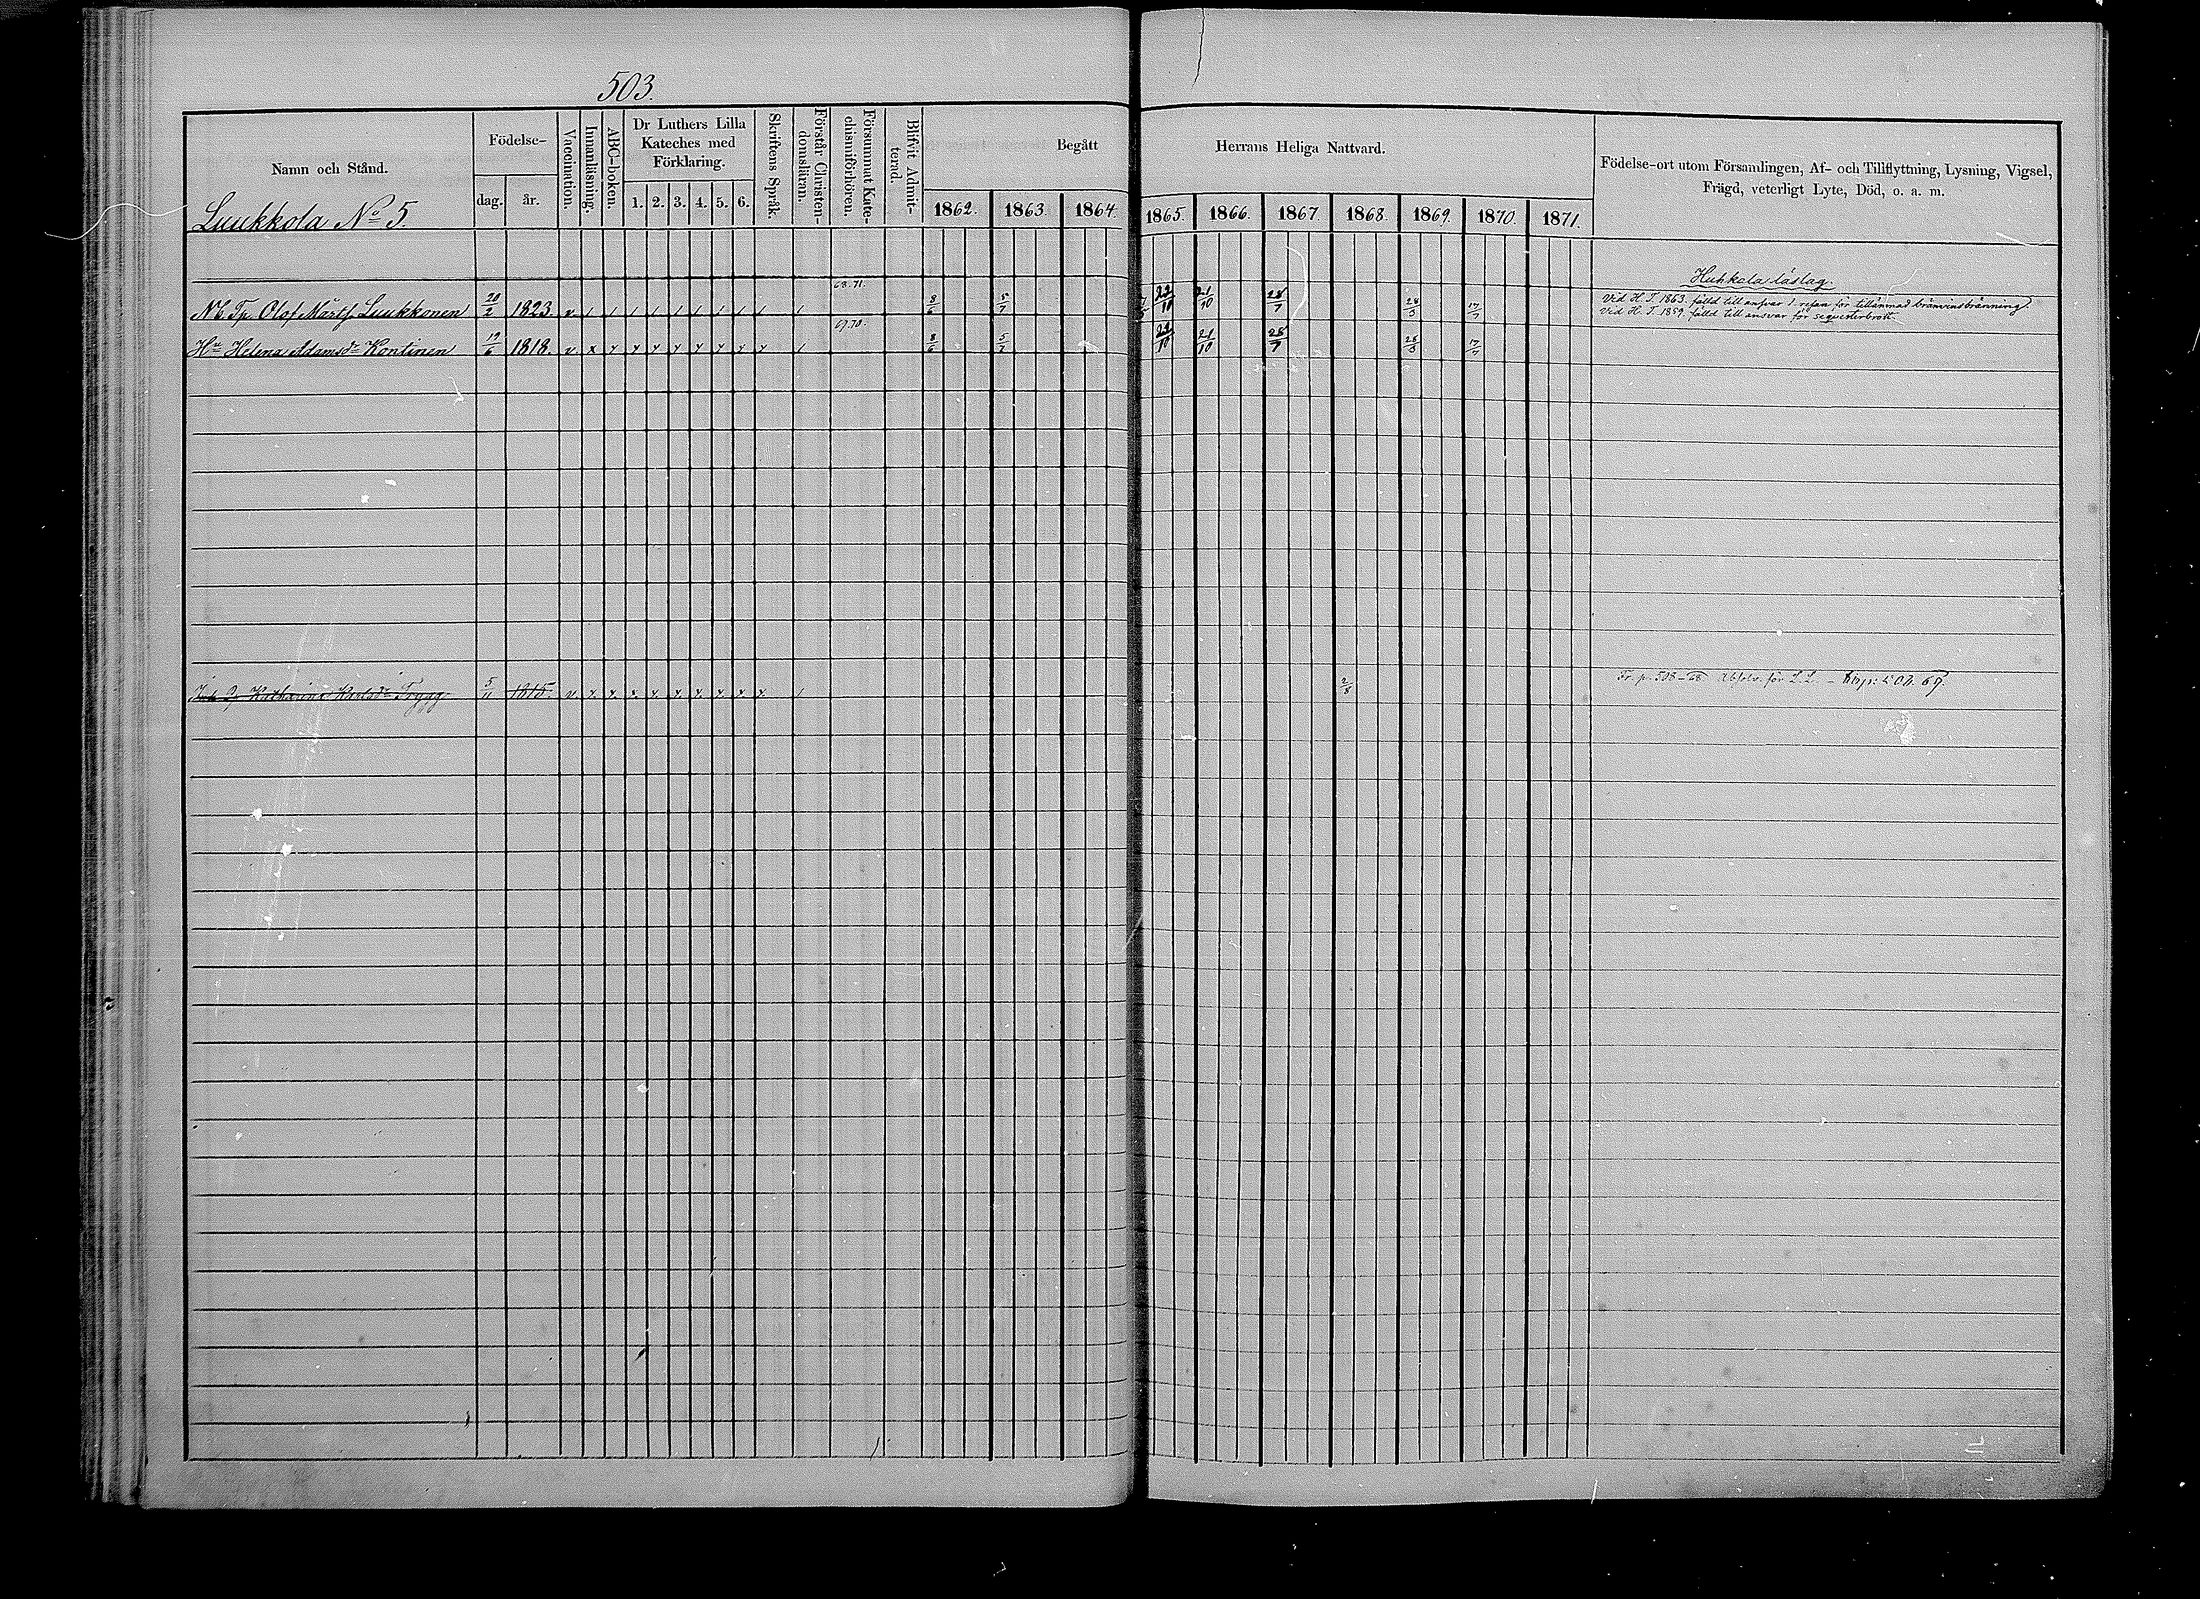 503.
Namn och Stånd.
Luukkola No 5.
Födelse-
dag. år.
Vaccination.
Innanläsning.
ABC-boken.
Dr Luthers Lilla
Kateches med
Förklaring.
1. 2. 3. 4. 5. 6.
Skriftens Språk.
Förstår Christen-
domsläran.
Försummat Kate-
chismiförhören.
Blifvit Admit-
terad.
Begått
Herrans Heliga Nattvard.
1862. 1863. 1864. 1865. 1866. 1867. 1868. 1869. 1870. 1871.
Födelse-ort utom Församlingen, Af- och Tillflyttning, Lysning, Vigsel,
Frägd, veterligt Lyte, Död, o. a. m.
Hukkola läslag.
68. 71.
NB Tp. Olof Mårtss. Luukkonen 20/2 1823. v / / / / / / / / / / 8/6 5/7 22/10 21/10 28/7 28/8 17/7 Vid H. T. 1863. fälld till ansvar 1. resan för tillämnad bränvinsbränning.
Vid H. T. 1859. fälld till ansvar för sequesterbrott.
69. 70.
Hu Helena Adamsdr Kontinen 19/6 1818. v x y y y y y y y y / 8/6 5/7 22/10 21/10 28/7 28/8 17/7
Katharina Paulsdr Trygg 5/11 1815. v y y y y y y y y y / 2/8 Fr. p. 508 - 68 Absolv. för L. L. -